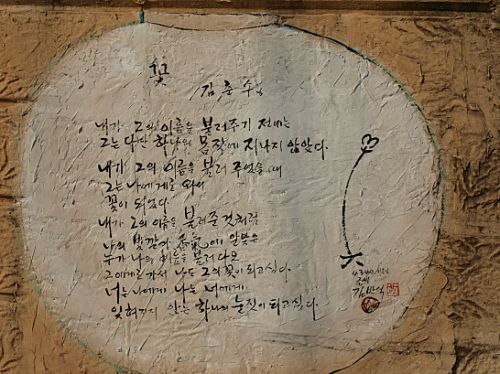 꽃
김춘수
내가 그의 이름을 불러주기 전에는
그는 다만 하나의 몸짓에 지나지 않았다.
내가 그의 이름을 불러 주었을 때
그는 나에게로 와서
꽃이 되었다
내가 그의 이름을 불러준 것처럼
나의 빛깔과 香氣에 알맞은
누가 나의 이름을 불러다오
그에게로 가서 나도 그의 꽃이 되고싶다.
너는 나에게 나는 너에게
잊혀지지 않는 하나의 눈짓이 되고싶다.